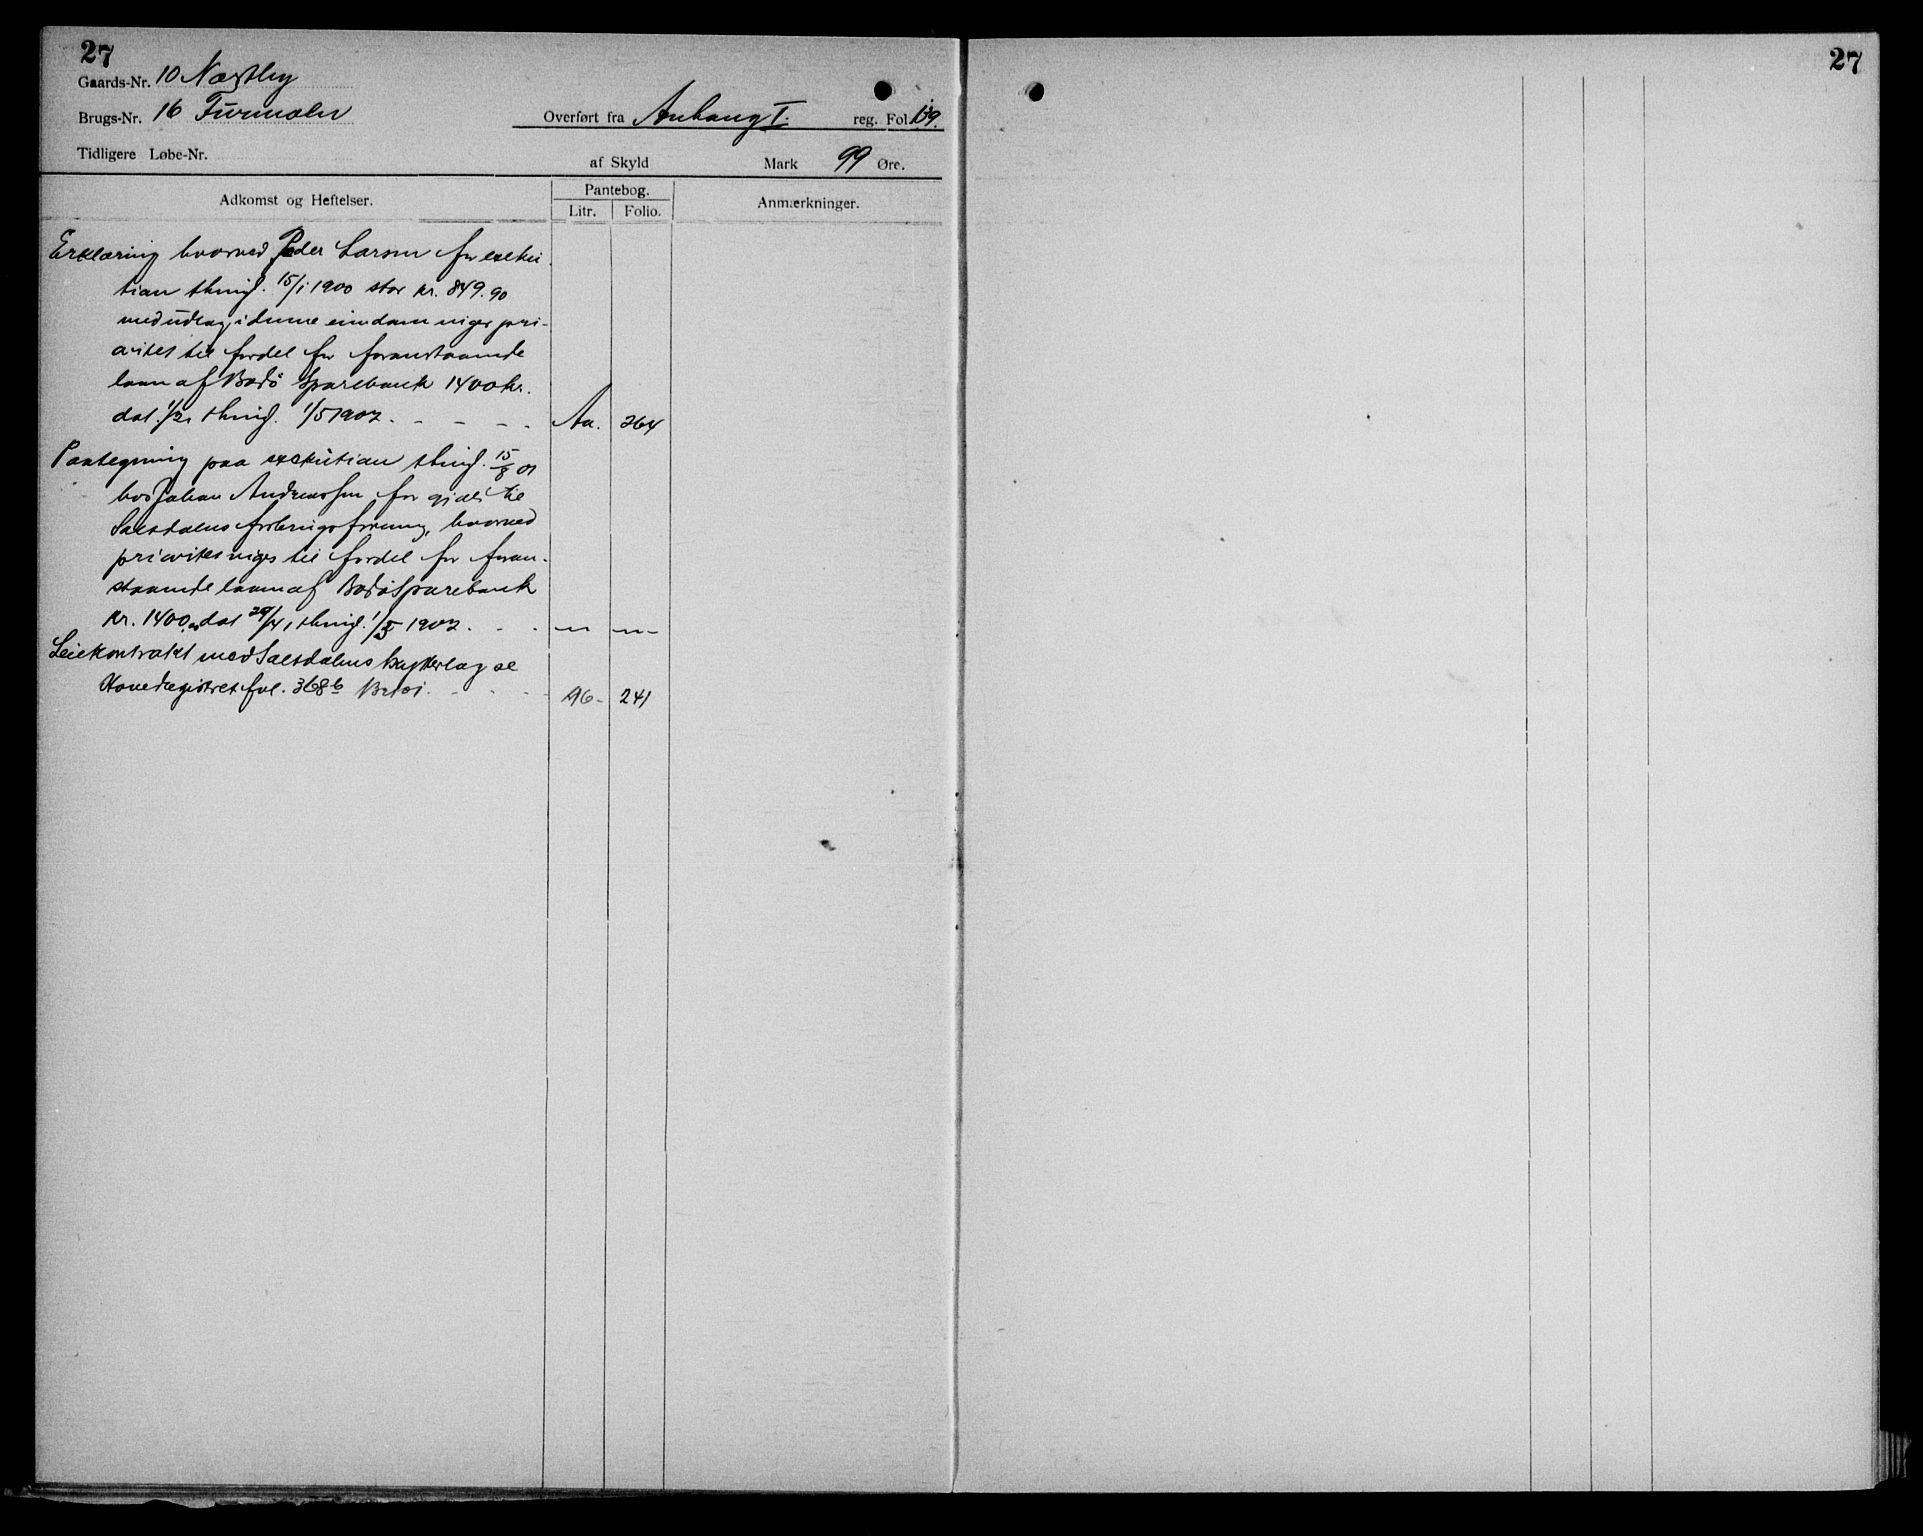 27
27
Gaards-Nr. 10 Næstby
Brugs-Nr. 16 Furumoen
Overført fra Anhang I. reg. Fol. 139.
Tidligere Løbe-Nr.
af Skyld Mark 99 Øre.
Adkomst og Heftelser.
Pantebog.
Litr. Folio.
Anmærkninger.
Erklæring hvorved Peder Larsen for exeku
tion thingl. 15/1 1900 stor kr. 849.90
med udlæg i denne eiendom viger pri-
oritet til fordel for foranstaaende
laan af Bodø Sparebank 1400 kr.
dat. thingl. 1/5 1902. - - - - Aa. 264
Paategning paa exekution thingl. 15/8 01
hos Johan Andreassen for gjæld til
Saltdalens forbrugsforening, hvorved
prioritet viges til fordel for foran-
staaende laan af Bodø Sparebank
kr. 1400 dat 29/4, thingl. 1/5 1902. - - - — —
Leiekontrakt med Saltdalens bygderlag se
Hovedregistret fol. 368 b - - - 241